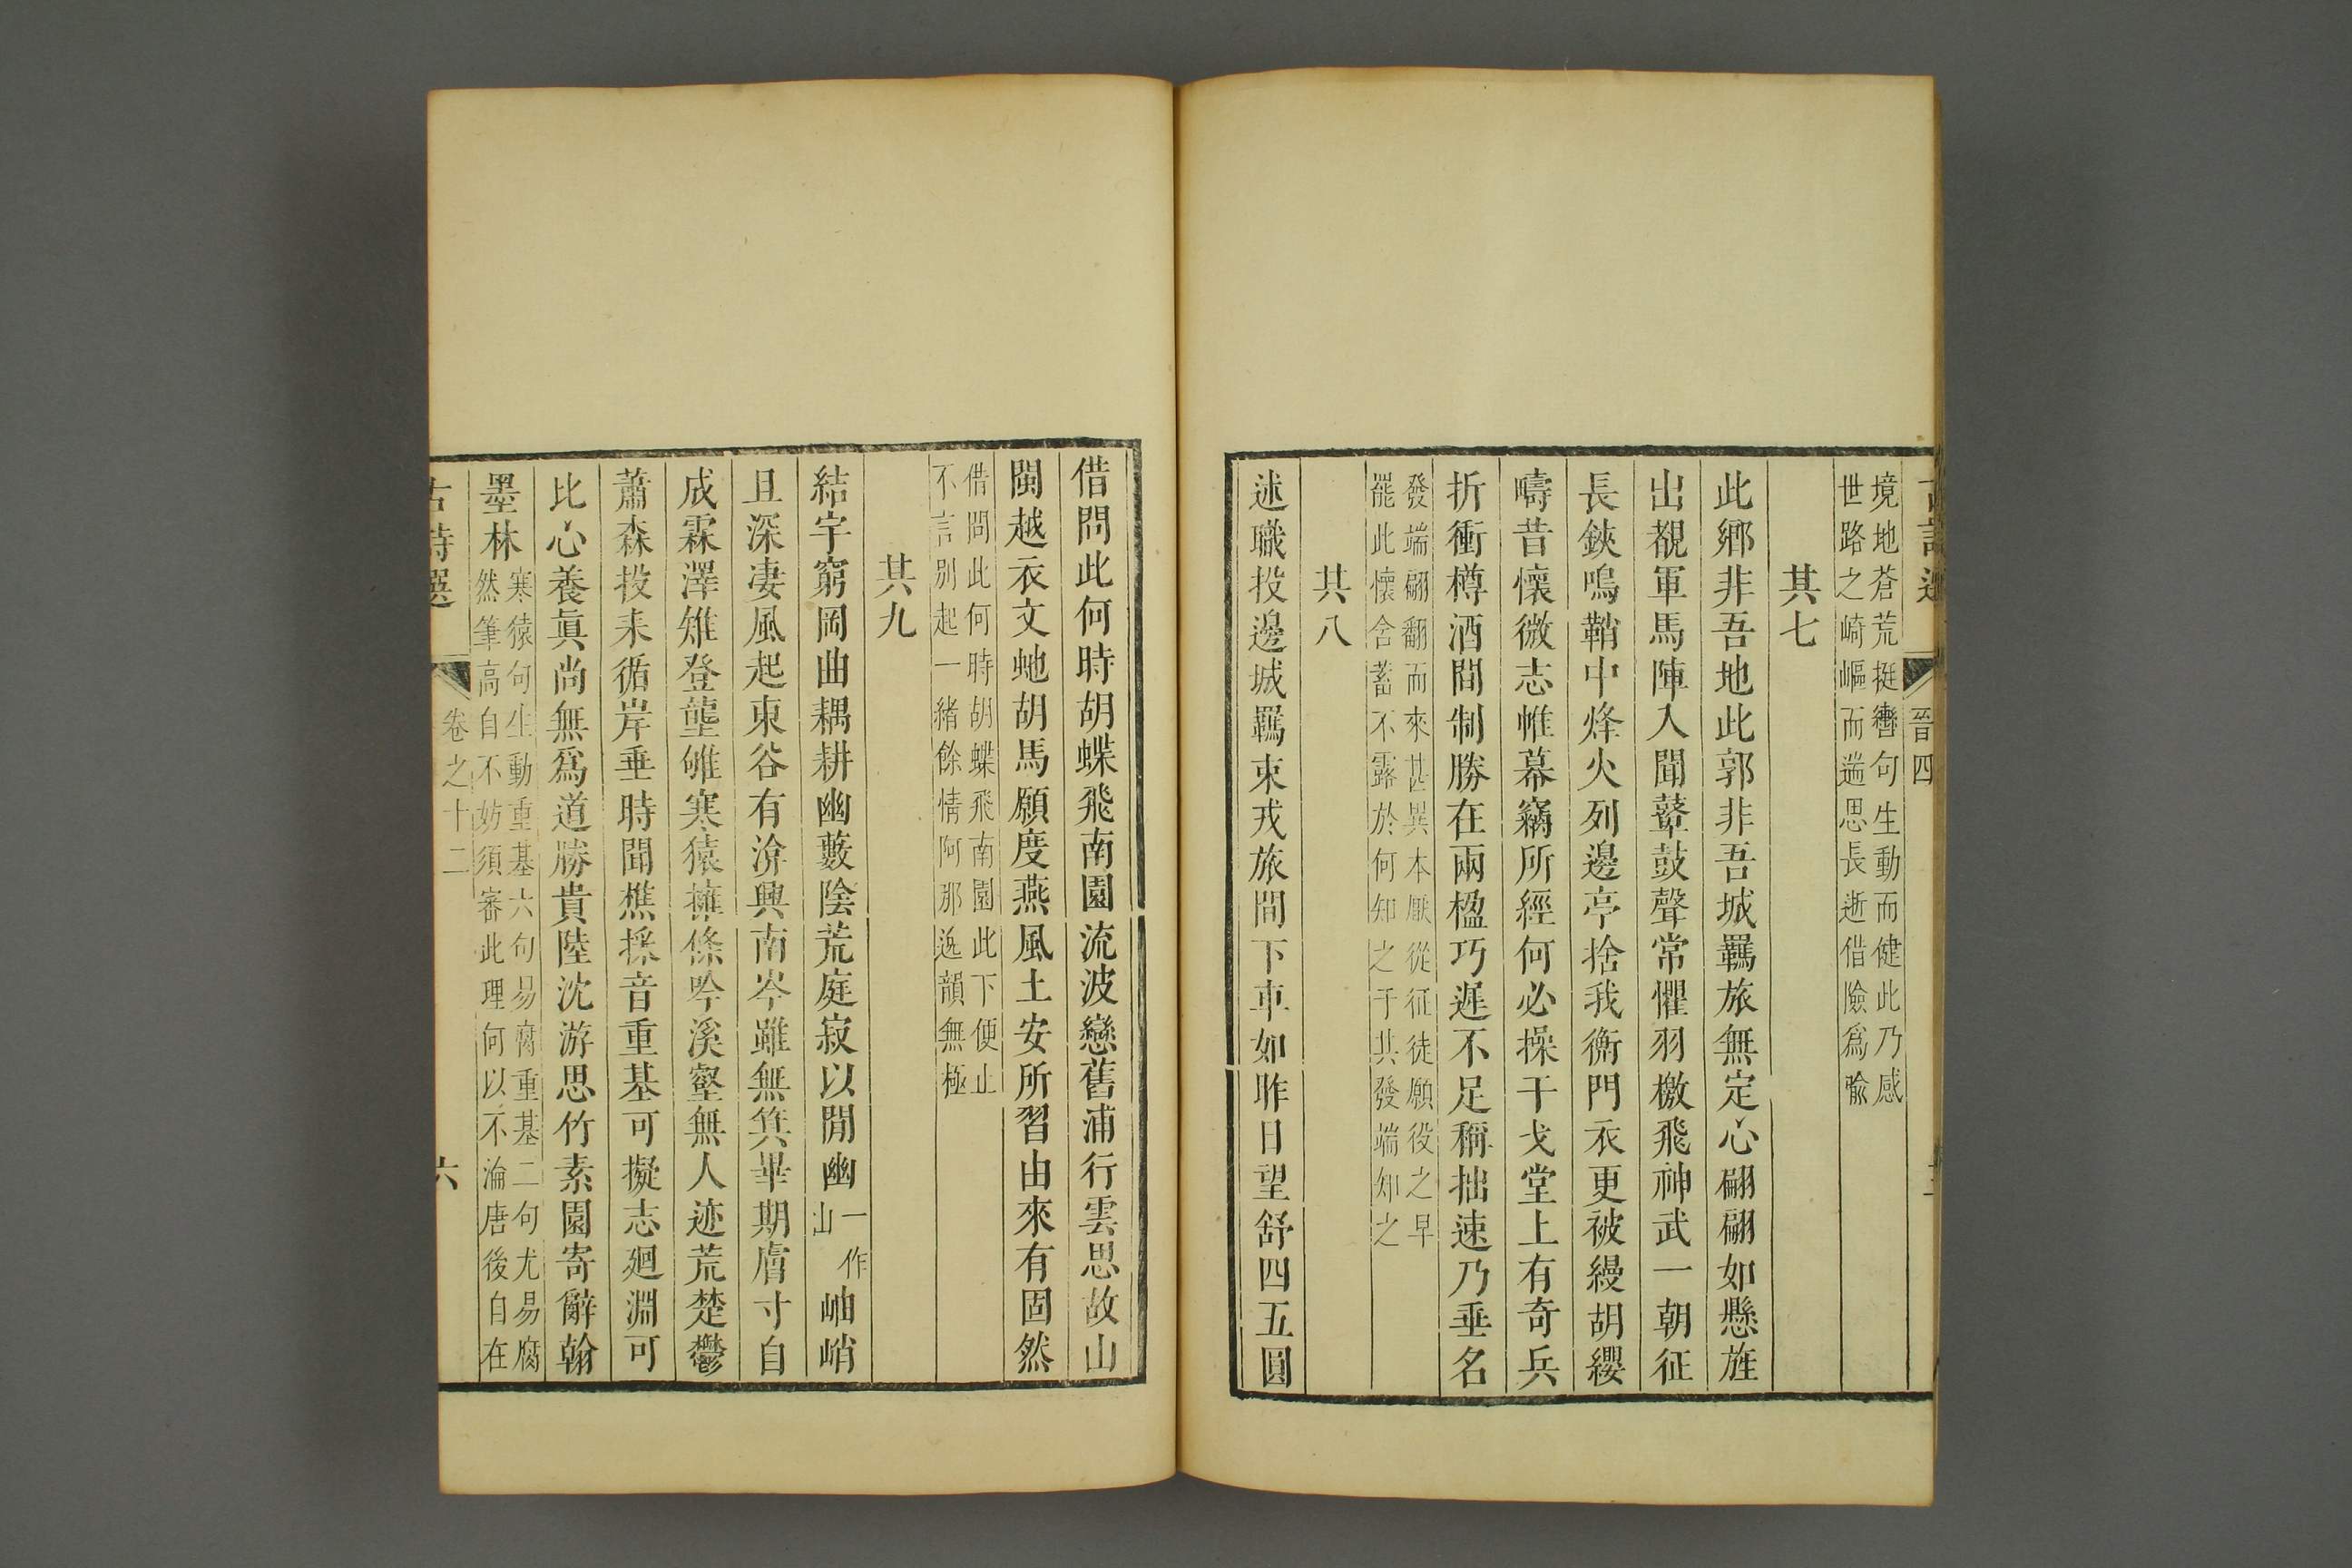 古詩選 晉四
境地蒼荒挺轡句生動而健此乃感
世路之崎嶇而遄思長逝借險爲喩
其七
此鄉非吾地此郭非吾城羈旅無定心翩翩如懸旌
出覩軍馬陣入聞鼙鼓聲常懼羽檄飛神武一朝征
長鋏鳴鞘中烽火列邊亭捨我衡門衣更被縵胡纓
疇昔懷微志帷幕竊所經何必操干戈堂上有奇兵
折衝樽酒間制勝在兩楹巧遲不足稱拙速乃垂名
發端翩翻而來甚異本厭從征徒願役之早
罷此懷含蓄不露於何知之于其發端知之
其八
述職投邊城羈束戎旅間下車如昨日望舒四五圓
借問此何時胡蝶飛南園流波戀舊浦行雲思故山
閩越衣文虵胡馬願度燕風土安所習由來有固然
借問此何時胡蝶飛南園此下便止
不言別起一緒餘情阿那逸韻無極
其九
結宇窮岡曲耦耕幽藪陰荒庭寂以閒幽一作山岫峭
且深凄風起東谷有渰興南岑雖無箕畢期膚寸自
成霖澤雉登壟雊寒猿擁條吟溪壑無人迹荒楚鬱
蕭森投耒循岸垂時聞樵採音重基可擬志廻淵可
比心養眞尚無爲道勝貴陸沈游思竹素園寄辭翰
墨林寒猿句生動重基六句易腐重基二句尤易腐
然筆高自不妨須審此理何以不淪唐後自在
古詩選 卷之十二 六